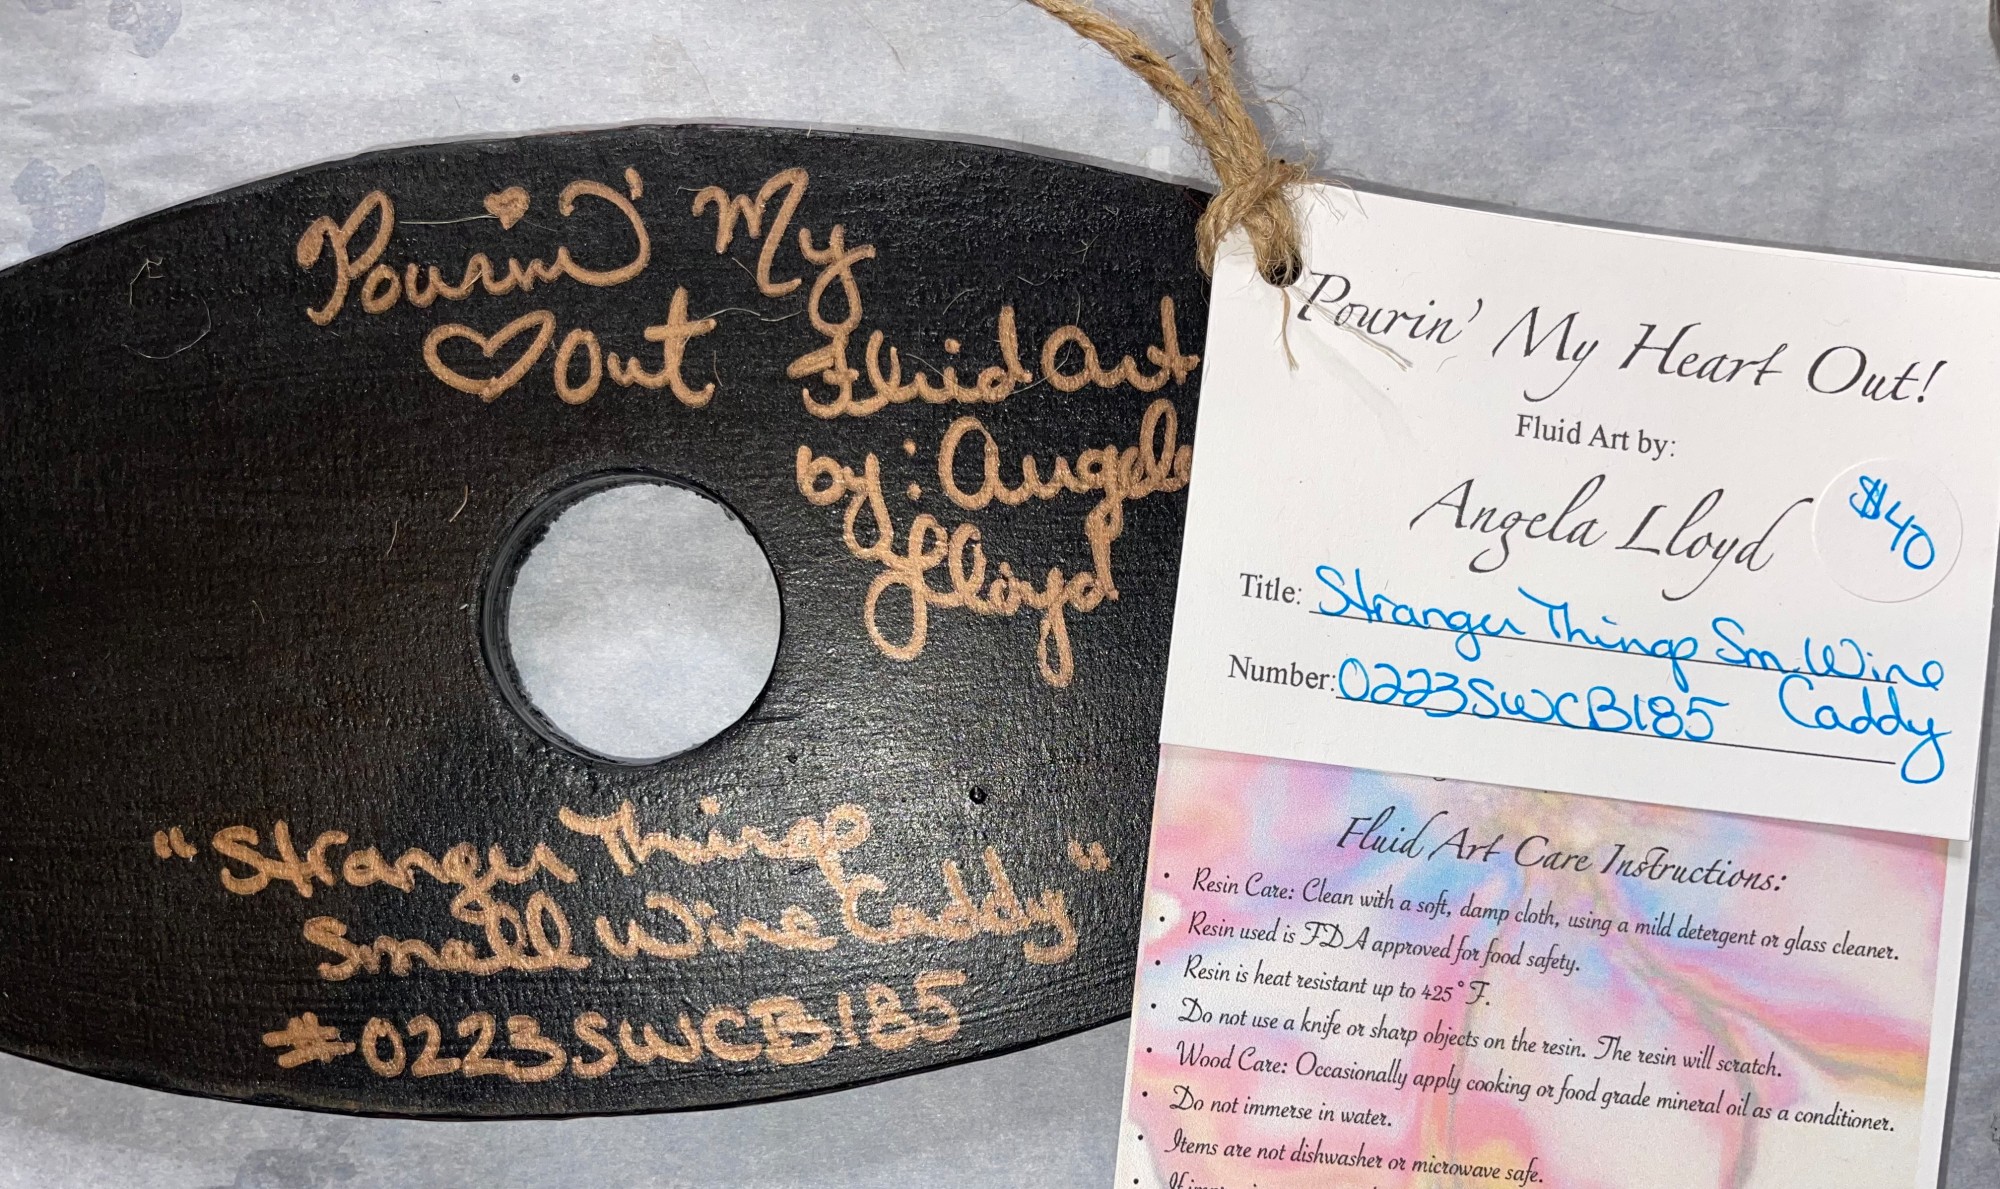 Pourin' My
♡ Out
Fluid Art
by: Angela
Lloyd
"Stranger Things
Small Wine Caddy"
#0223SWCB185
Pourin' My Heart Out!
Fluid Art by:
Angela Lloyd
$40
Title: Stranger Things Sm. Wine
Caddy
Number: 0223SWCB185
Fluid Art Care Instructions:
• Resin Care: Clean with a soft, damp cloth, using a mild detergent or glass cleaner.
• Resin used is FDA approved for food safety.
• Resin is heat resistant up to 425°F.
• Do not use a knife or sharp objects on the resin. The resin will scratch.
• Wood Care: Occasionally apply cooking or food grade mineral oil as a conditioner.
• Do not immerse in water.
• Items are not dishwasher or microwave safe.